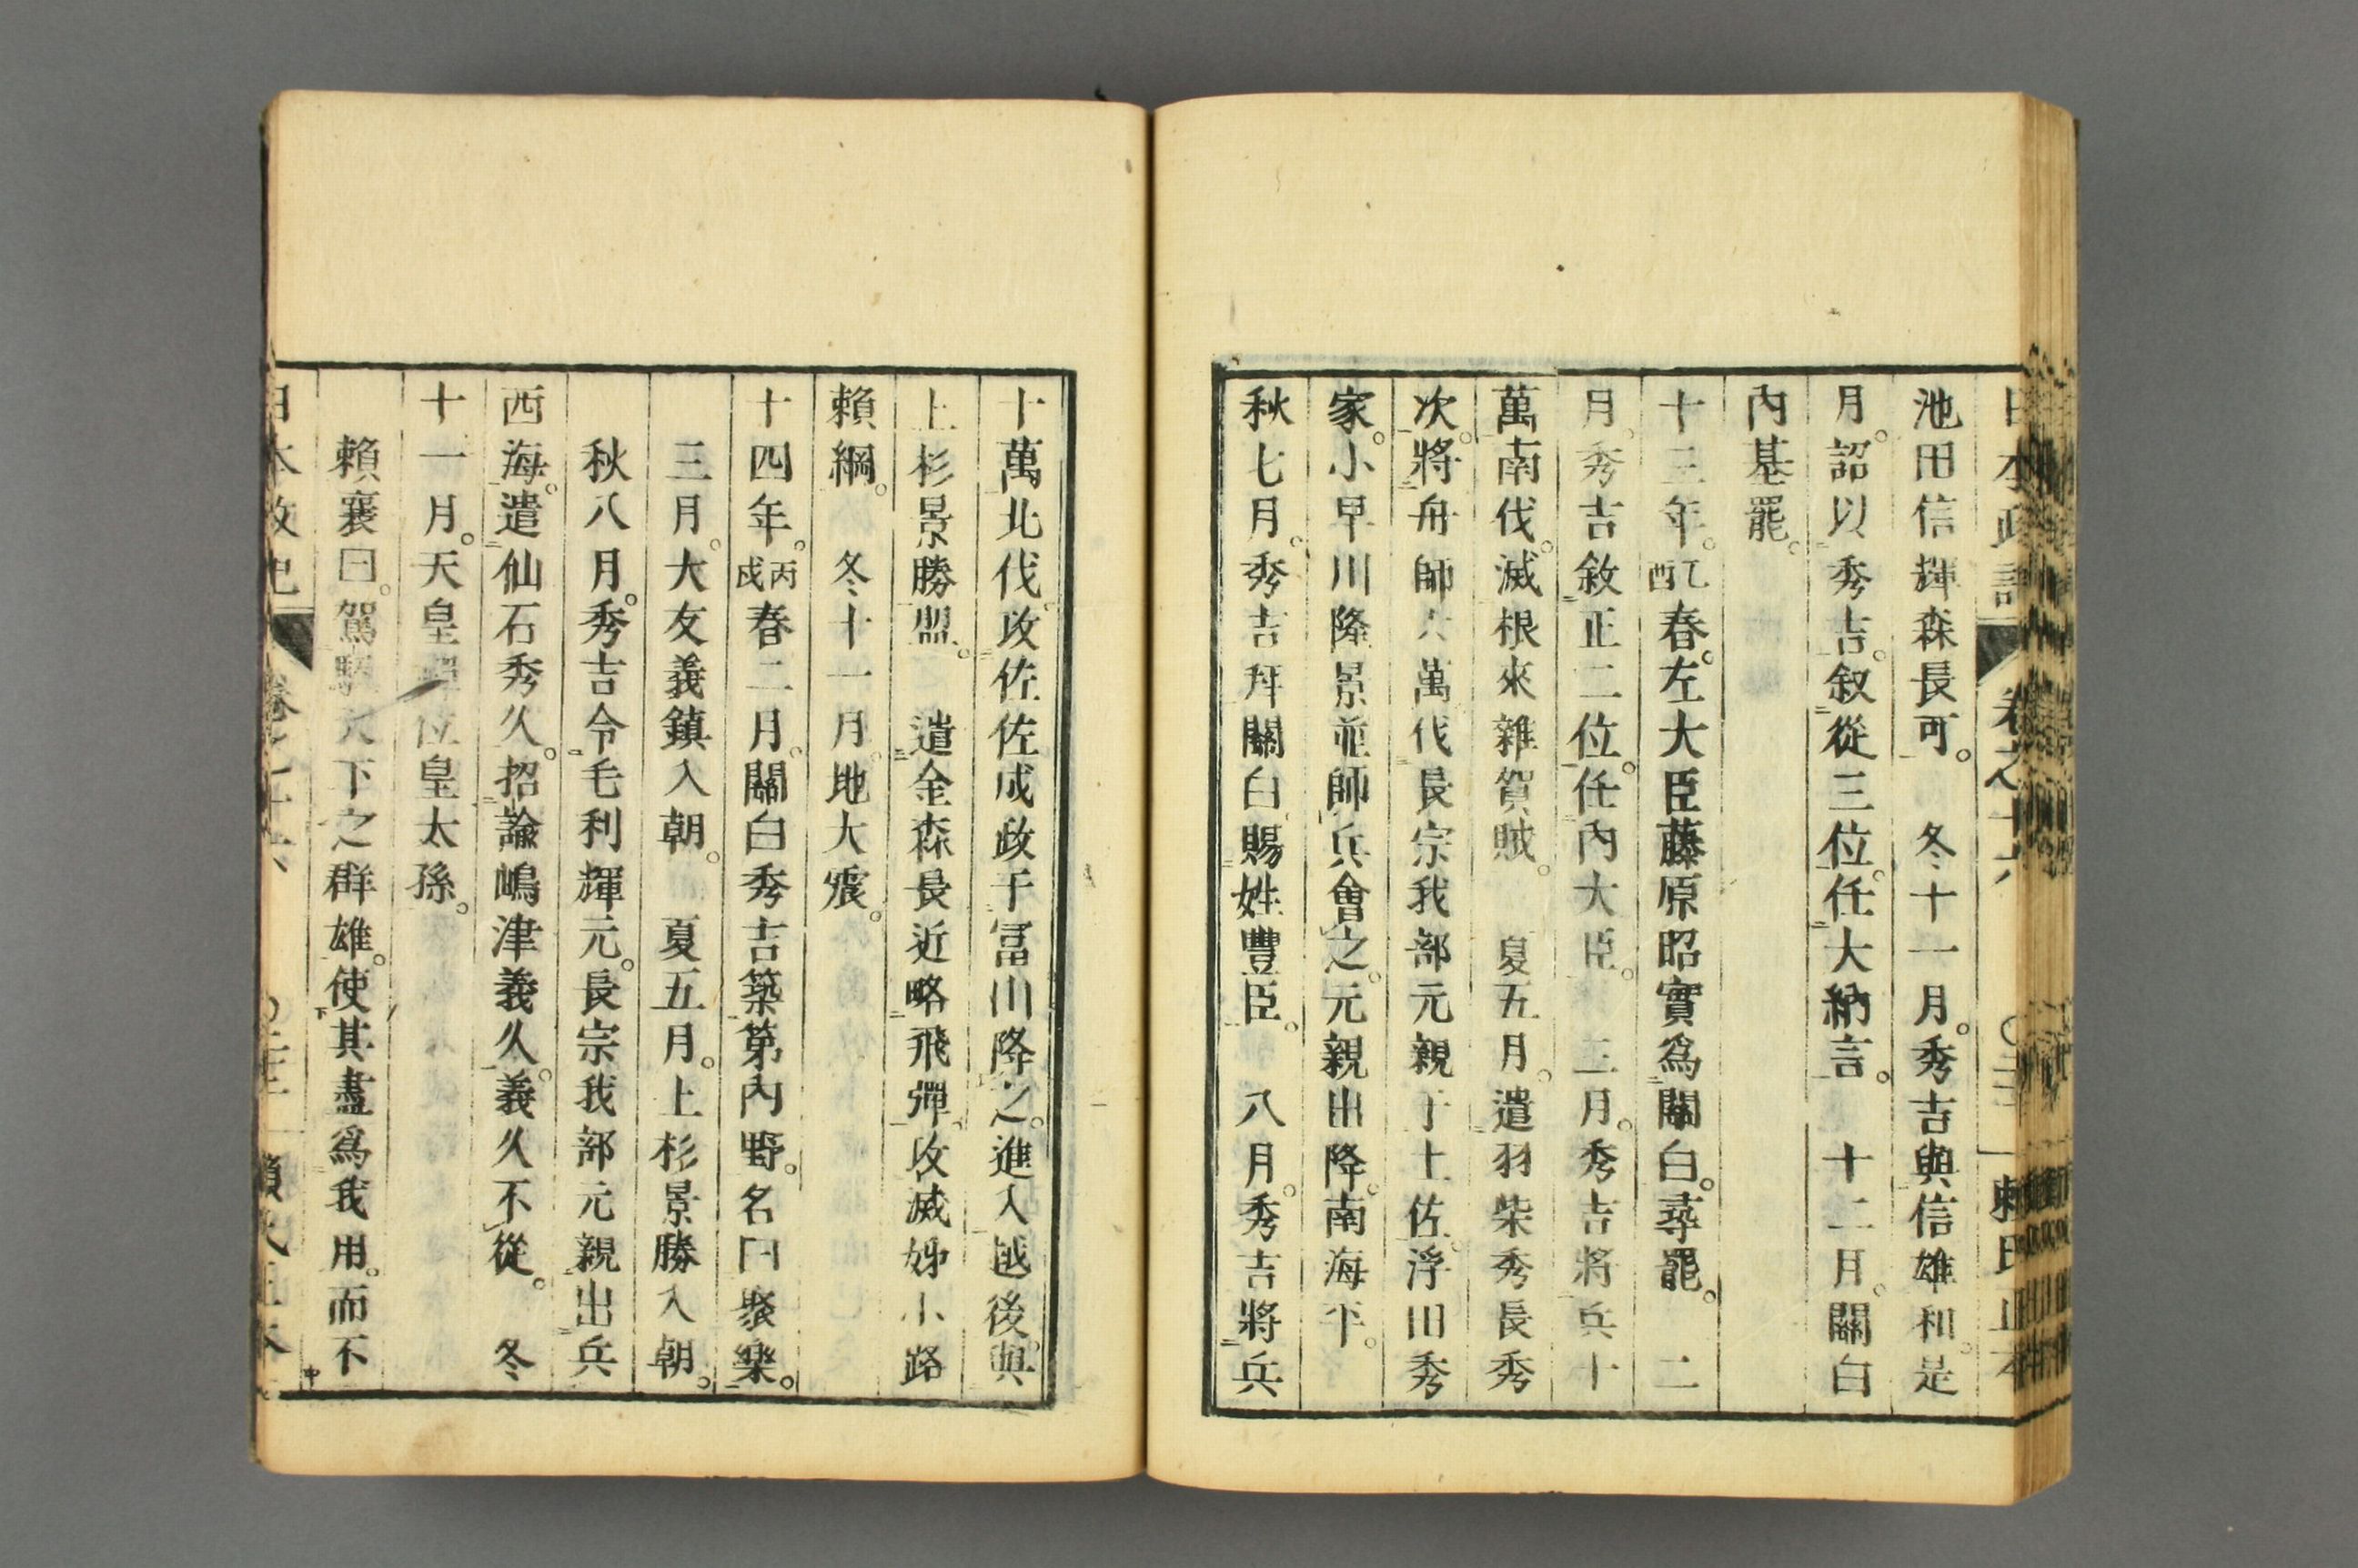 池田信輝森長可。冬十一月。秀吉與信雄和。是
月。詔以秀吉。叙從三位。任大納言。十二月。關白
內基罷。
十三年。乙酉春。左大臣藤原昭實爲關白。尋罷。二
月。秀吉敘正二位。任內大臣。三月。秀吉將兵十
萬南伐。滅根來雜賀賊。夏五月。遣羽柴秀長秀
次。將舟師六萬伐長宗我部元親于土佐。浮田秀
家。小早川隆景並師兵會之。元親出降。南海平。
秋七月。秀吉拜關白。賜姓豐臣。八月。秀吉將兵
十萬北伐。攻佐佐成政于冨山降之。進入越後。與
上杉景勝盟。遣金森長近略飛彈。攻滅姊小路
賴綱。冬十一月。地大震。
十四年。丙戌春二月。關白秀吉築第內野。名曰聚樂。
三月。大友義鎮入朝。夏五月。上杉景勝入朝。
秋八月。秀吉令毛利輝元。長宗我部元親出兵
西海。遣仙石秀久。招諭嶋津義久。義久不從。冬
十一月。天皇位皇太孫。
賴襄曰。駕天下之群雄。使其盡爲我用。而不